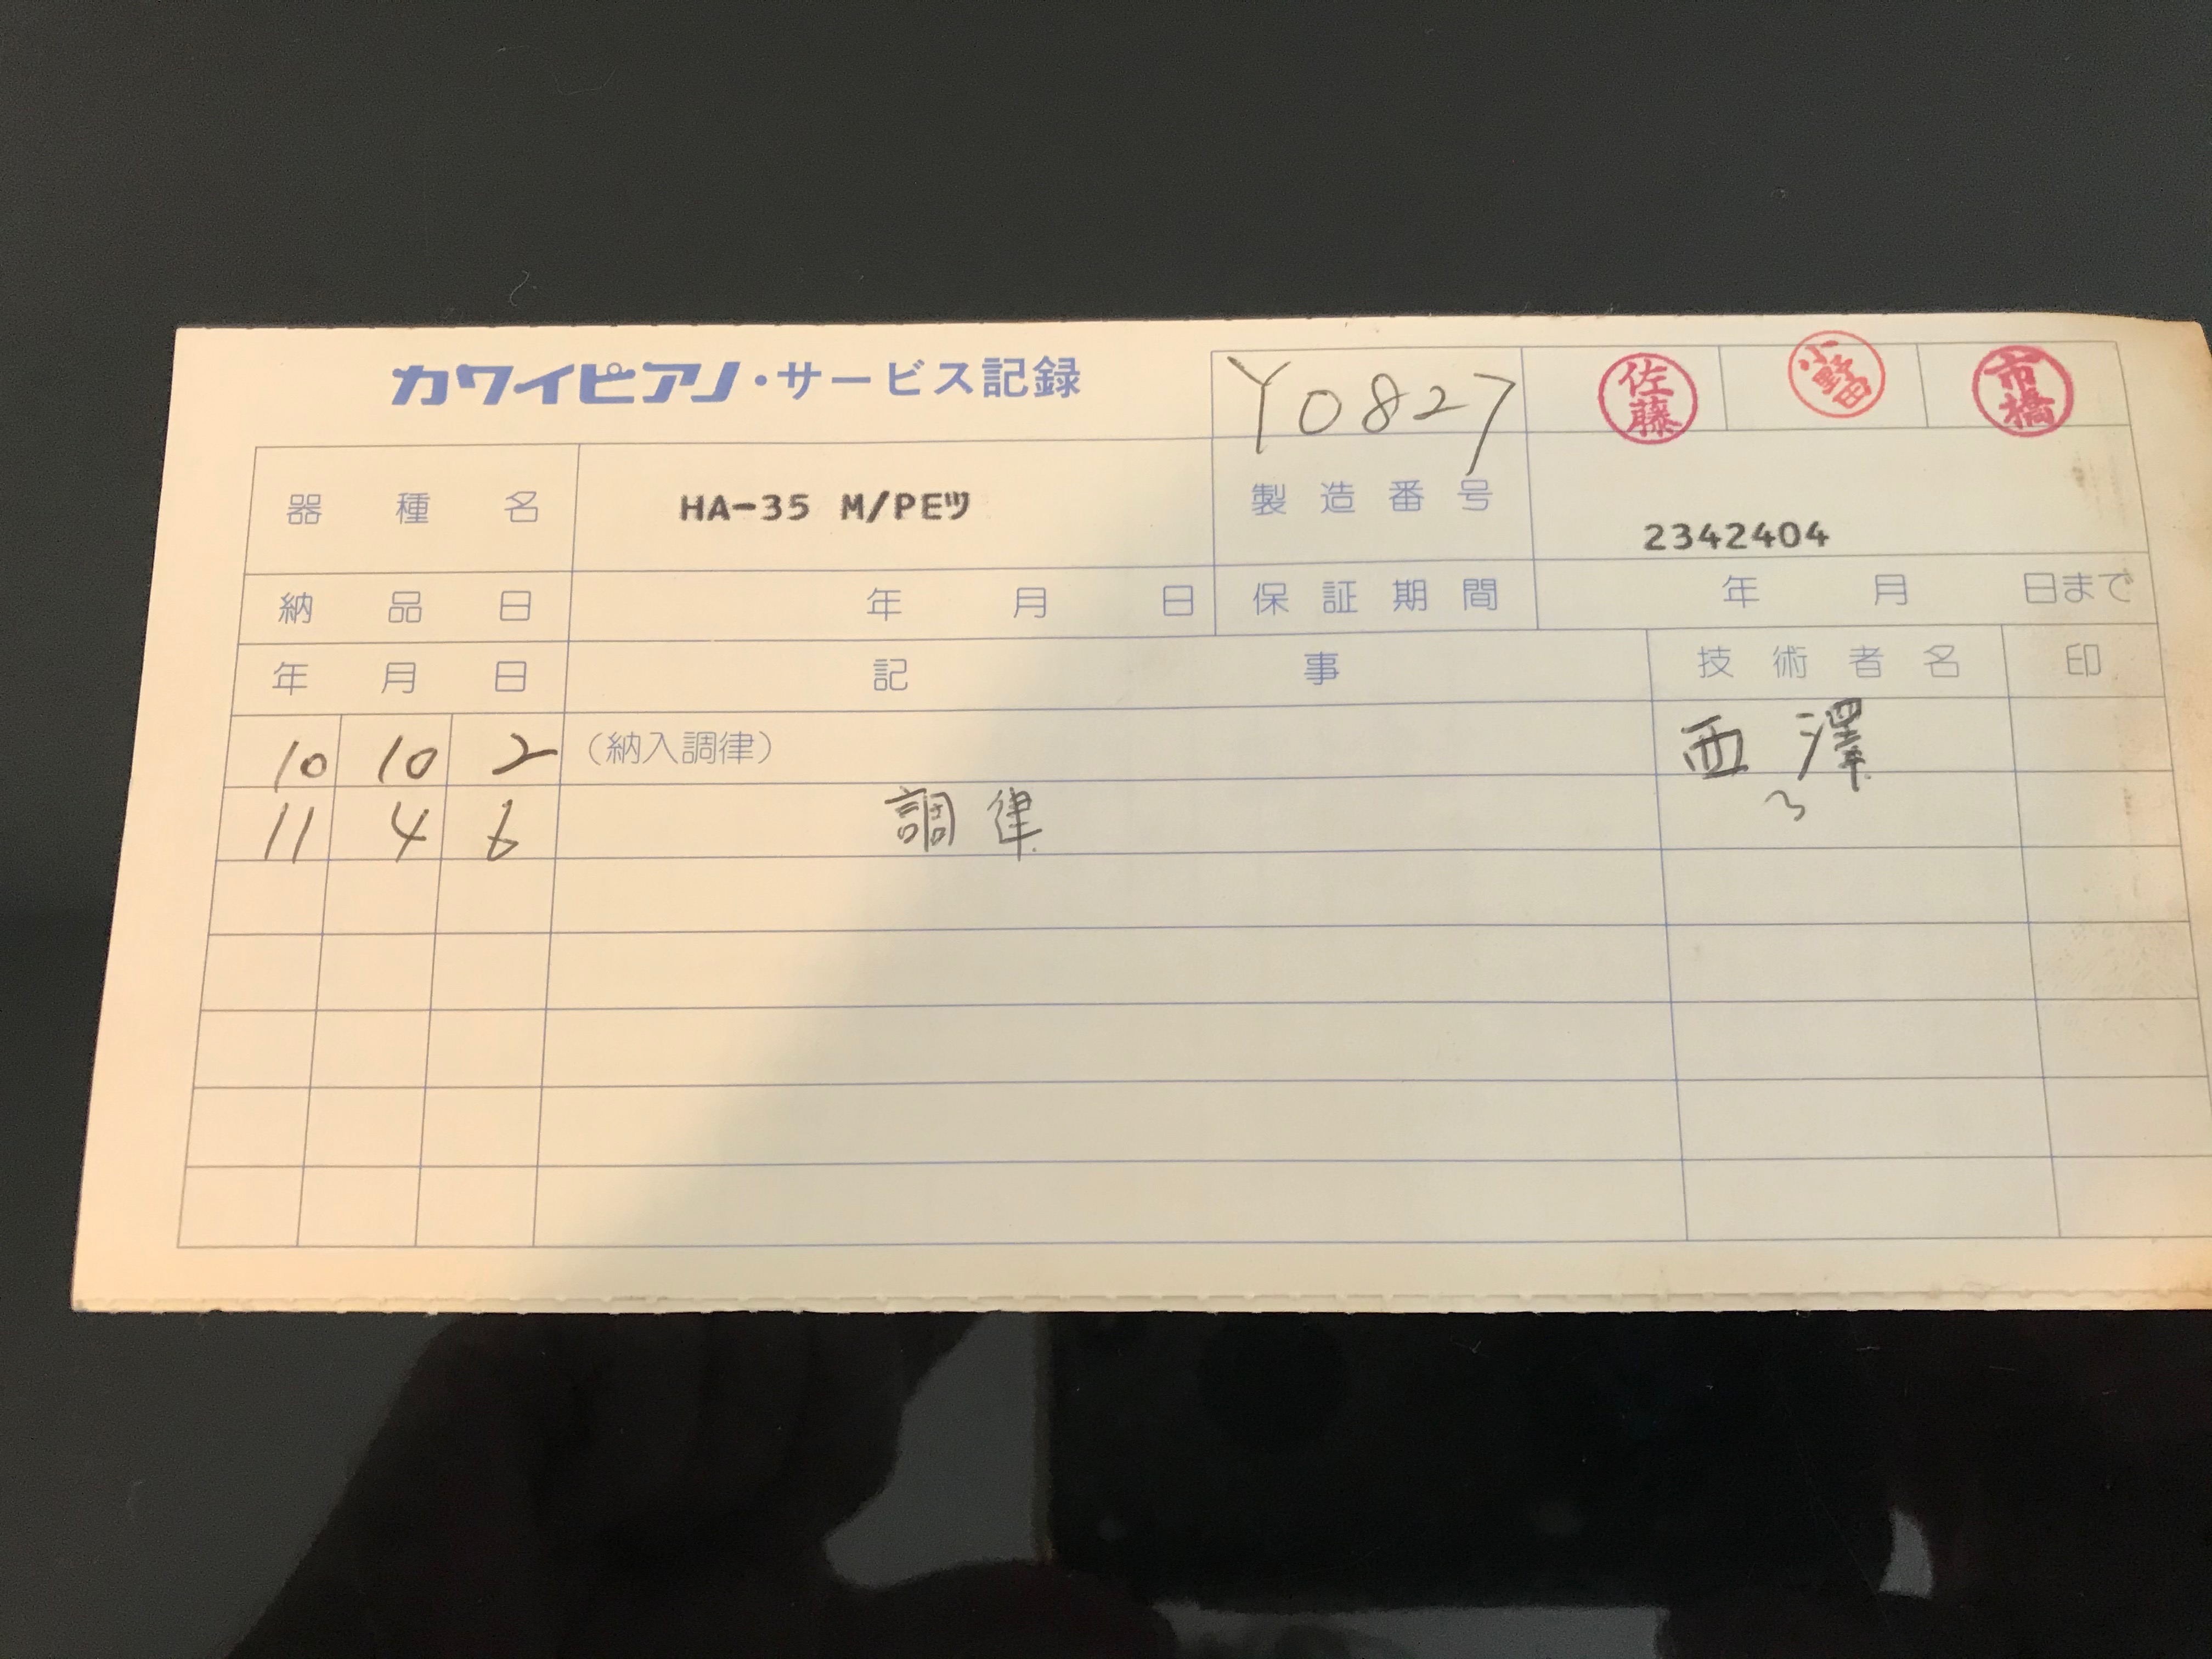 カワイピアノ・サービス記録 Y0827 佐藤 小野田 市橋
器種名 HA-35 M/PEツ 製造番号 2342404
納品日 年 月 日 保証期間 年 月 日まで
年 月 日 記事 技術者名 印
10 10 2 (納入調律) 西澤
11 4 6 調律 〃